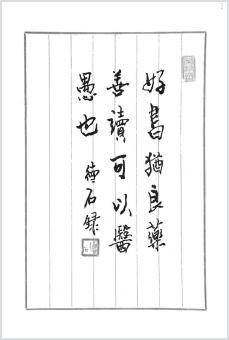 好書猶良藥
善讀可以醫
愚也 德石錄